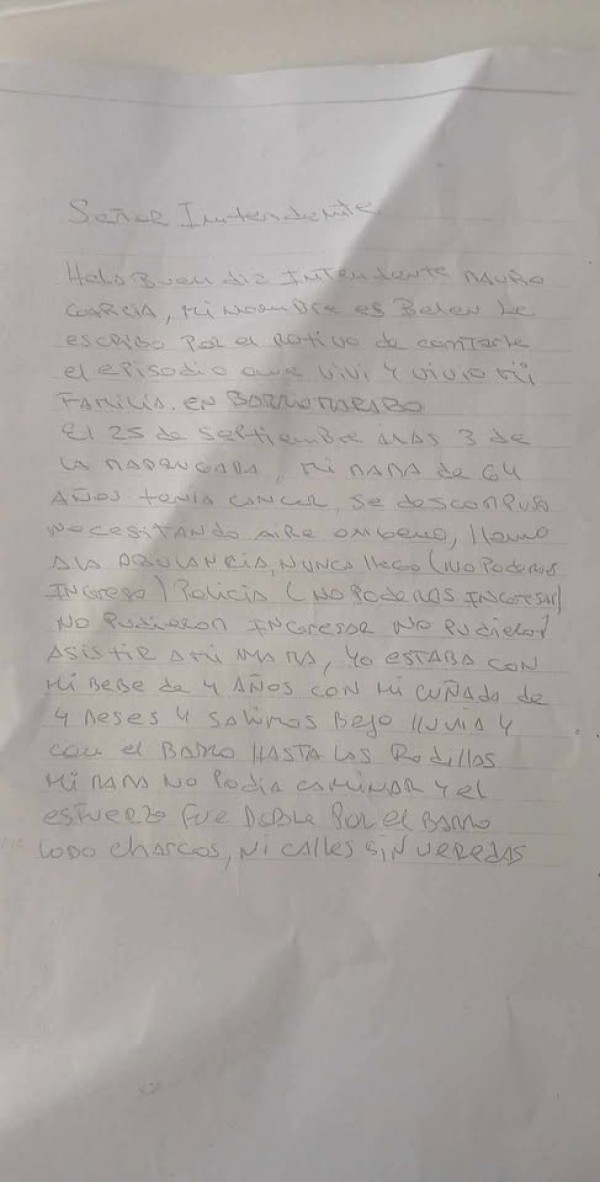 Señor Inntendente
Hola Buen dia Intendente MAURO
GARCIA, Mi nombre es Belen Le
escribo Por el motivo de contarle
el episodio que vivi y vivio mi
FAMILIA. EN BARRO MARABO
El 25 de Septiembre a las 3 de
LA MADRUGADA, mi mama de 64
AÑOS tenia CANCER, se descompuso
necesitando aire llamo
a la nunca llego (no podemos
INGreso) Policia (NO PODEMOS INGresar)
No Pudieron INGresar No Pudieron
Asistir a mi MAMA, yo estaba con
Mi bebe de 4 AÑOS CON Mi cuñado de
4 meses y salimos bajo lluvia y
con el Barro HASTA LAS Rodillas
Mi mama no Podia caminar y el
esfuerzo fue Doble Por el Barro
Lodo charcos, Ni calles SiN veredas